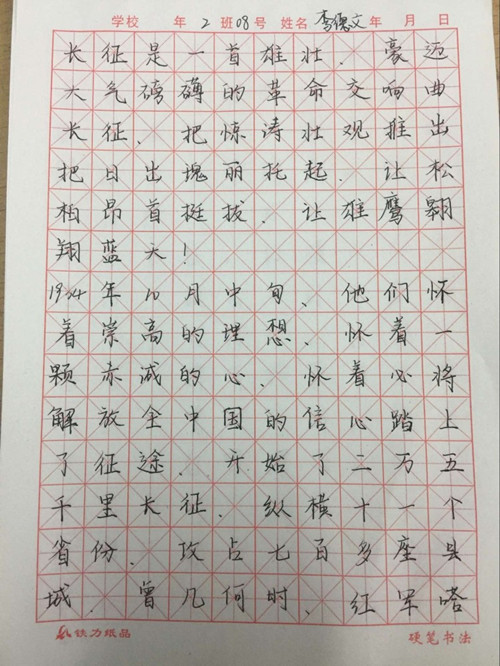 学校 年 2 班 08 号 姓名 李德文 年 月 日
长征是一首雄壮、豪迈
大气磅礴的革命交响曲
长征、把惊涛壮观推出
把日出瑰丽托起、让松
柏昂首挺拔、让雄鹰翱
翔蓝天!
1934年10月中旬、他们怀
着崇高的理想、怀着一
颗赤诚的心、怀着必将
解放全中国的信心踏上
了征途、开始了二万五
千里长征、纵横十一个
省份、攻占七百多座县
城、曾几何时、红军嗒
铁力纸品 硬笔书法